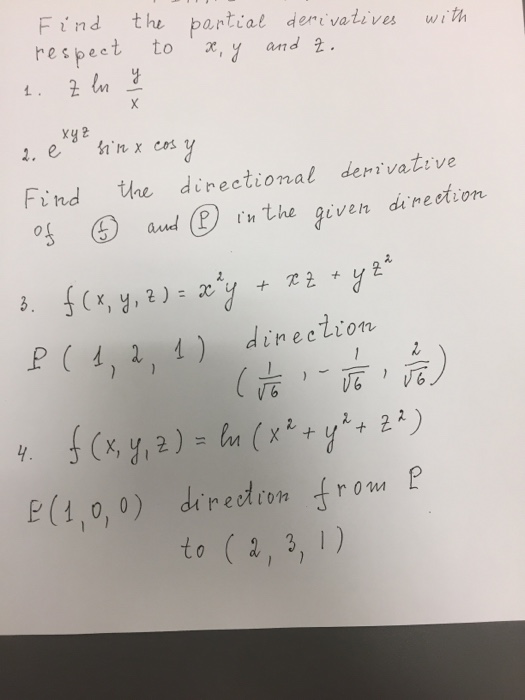 Find the partial derivatives with
respect to x, y and z.
1. z ln y/x
2. e^xyz sin x cos y
Find the directional derivative
of f and P in the given direction
3. f(x, y, z) = x²y + xz + yz²
P(1, 2, 1) direction
(1/√6, -1/√6, 2/√6)
4. f(x, y, z) = ln(x² + y² + z²)
P(1, 0, 0) direction from P
to (2, 3, 1)